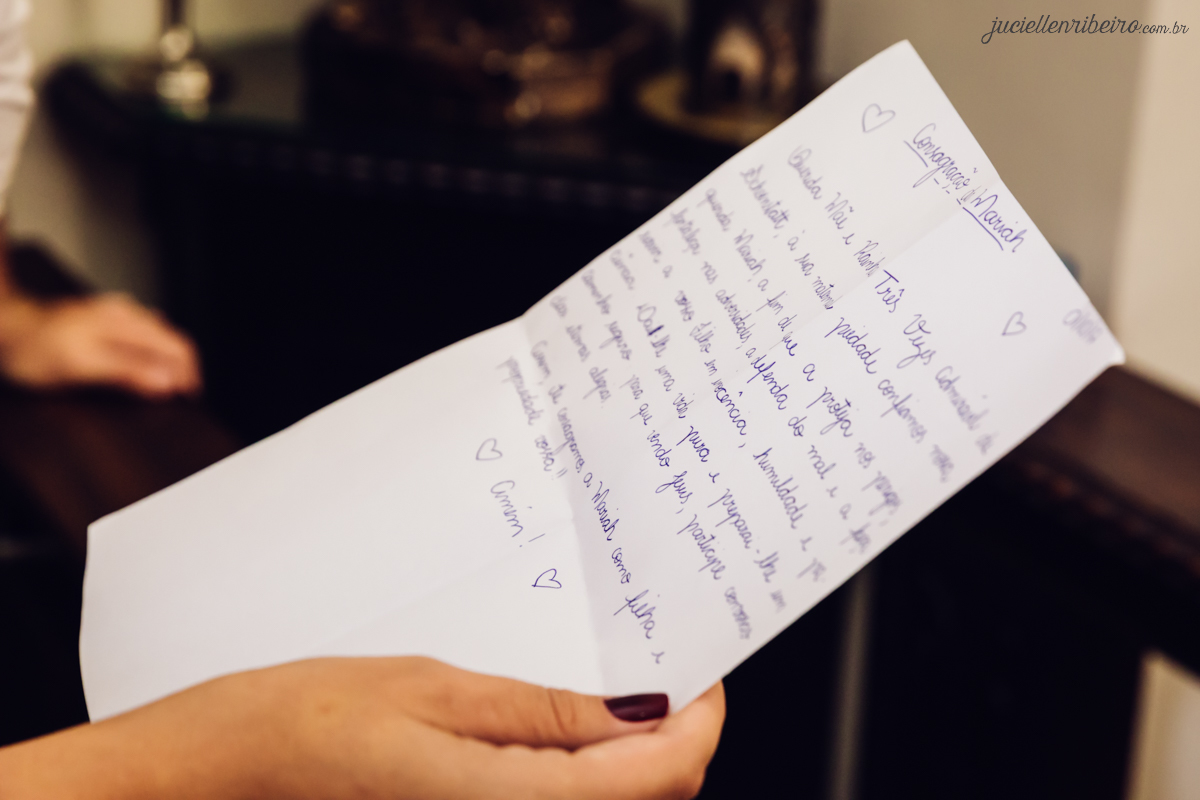 juciellenribeiro.com.br
Consagração à Mariah
Querida Mãe e Rainha Três Vezes Admirável de
Schoenstatt, à sua materna piedade confiamos nossa
querida Mariah a fim de que a proteja nos perigos,
fortaleça nas adversidades, a defenda do mal e a faça
a vosso Filho em inocência, humildade e
Dai-lhe uma vida pura e preparai-lhe um
caminho seguro para que vendo Jesus, participe convosco
das eternas alegrias.
Assim, te consagramos a Mariah como filha e
propriedade vossa!!
Amém!